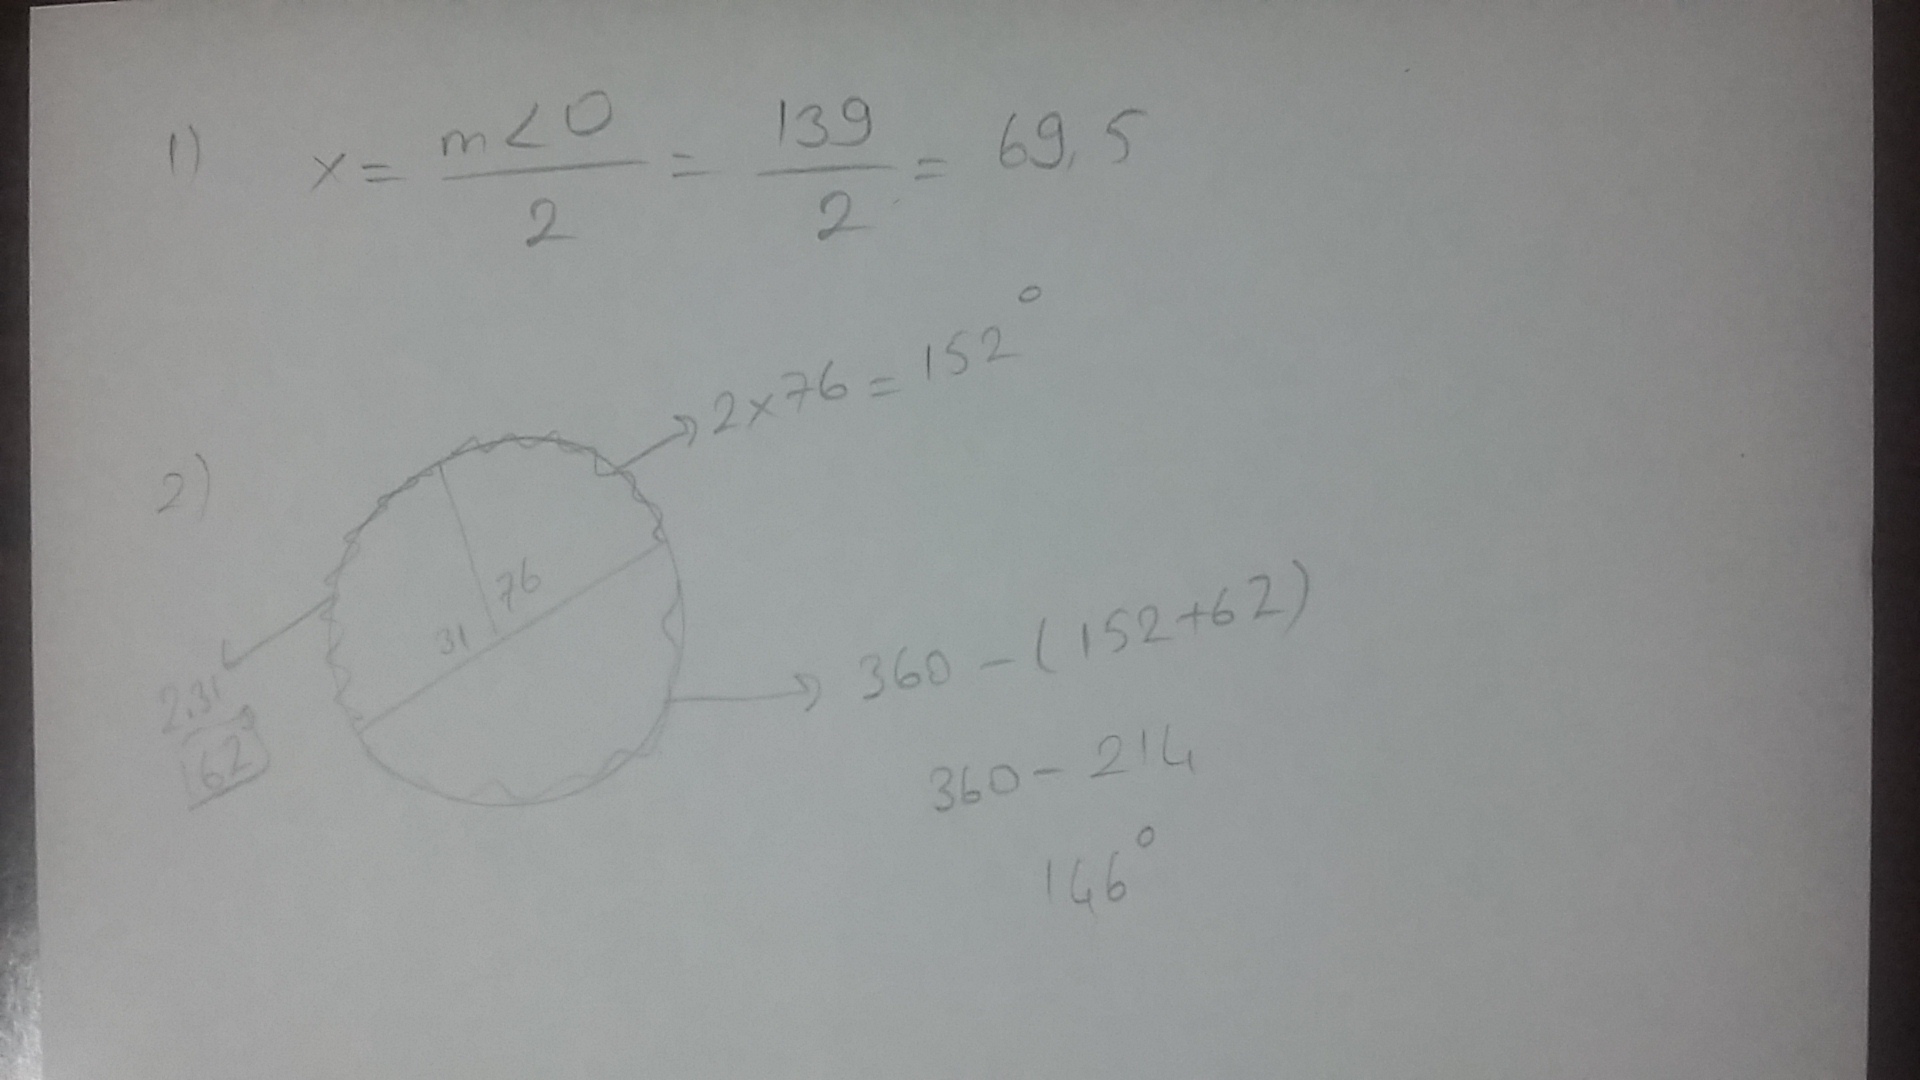 1) x = m<O / 2 = 139 / 2 = 69,5
2x76 = 152°
2)
76
31
2.31
62
360 - (152+62)
360 - 214
146°